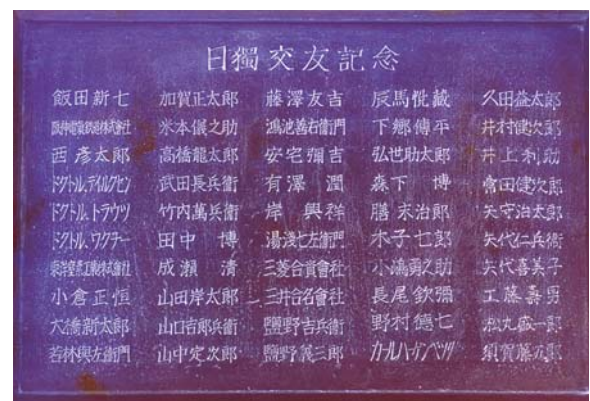 日獨交友記念
飯田新七 加賀正太郎 藤澤友吉 辰馬悅藏 久田益太郎
阪神電氣鉄道株式會社 米本儀之助 鴻池善右衞門 下郷傳平 井村健次郎
西彥太郎 高橋龍太郎 安宅彌吉 弘世助太郎 井上利助
武田長兵衞 有澤潤 森下博 常田健次郎
ドクトル、トラウツ 竹内萬兵衞 岸興祥 膳末治郎 矢守治太郎
ドクトル、ワクチー 田中博 湯淺七左衞門 木子七郎 矢代仁兵衞
成瀬清 三菱合資會社 小嶋勇之助 矢代喜美子
小倉正恒 山田岸太郎 三井合名會社 長尾欽彌 工藤壽男
大橋新太郎 山口吉郎兵衞 鹽野吉兵衞 野村德七
若林與左衞門 山中定次郎 鹽野義三郎 須賀藤五郎